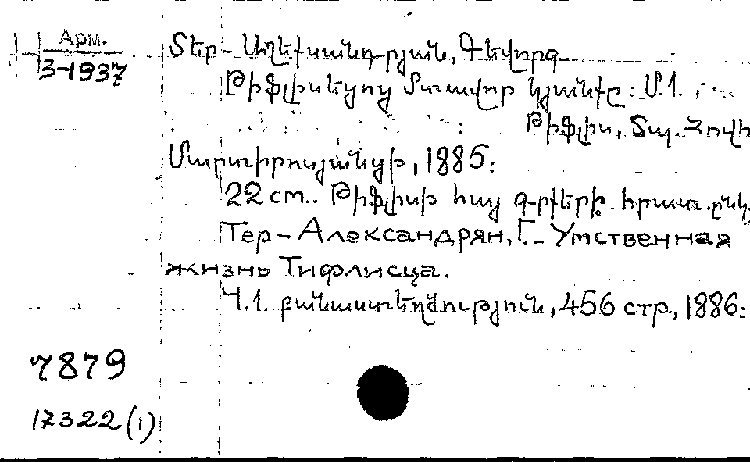 Арм.
3-1937
Տեր-Աղեքսանդրյան, Գեվորգ
Թիֆլիսեցոց մտավոր կյանքը: Մ.1.
Թիֆլիս, Տպ. Հովհ
Մարտիրոսյանցի, 1885:
22 cm. Թիֆլիսի հայ գրքերի հրատ. ընկ.
Тер-Александрян, Г. Умственная
жизнь Тифлисца.
Ч.1. բանաստեղծություն, 456 стр., 1886:
7879
17322(1)